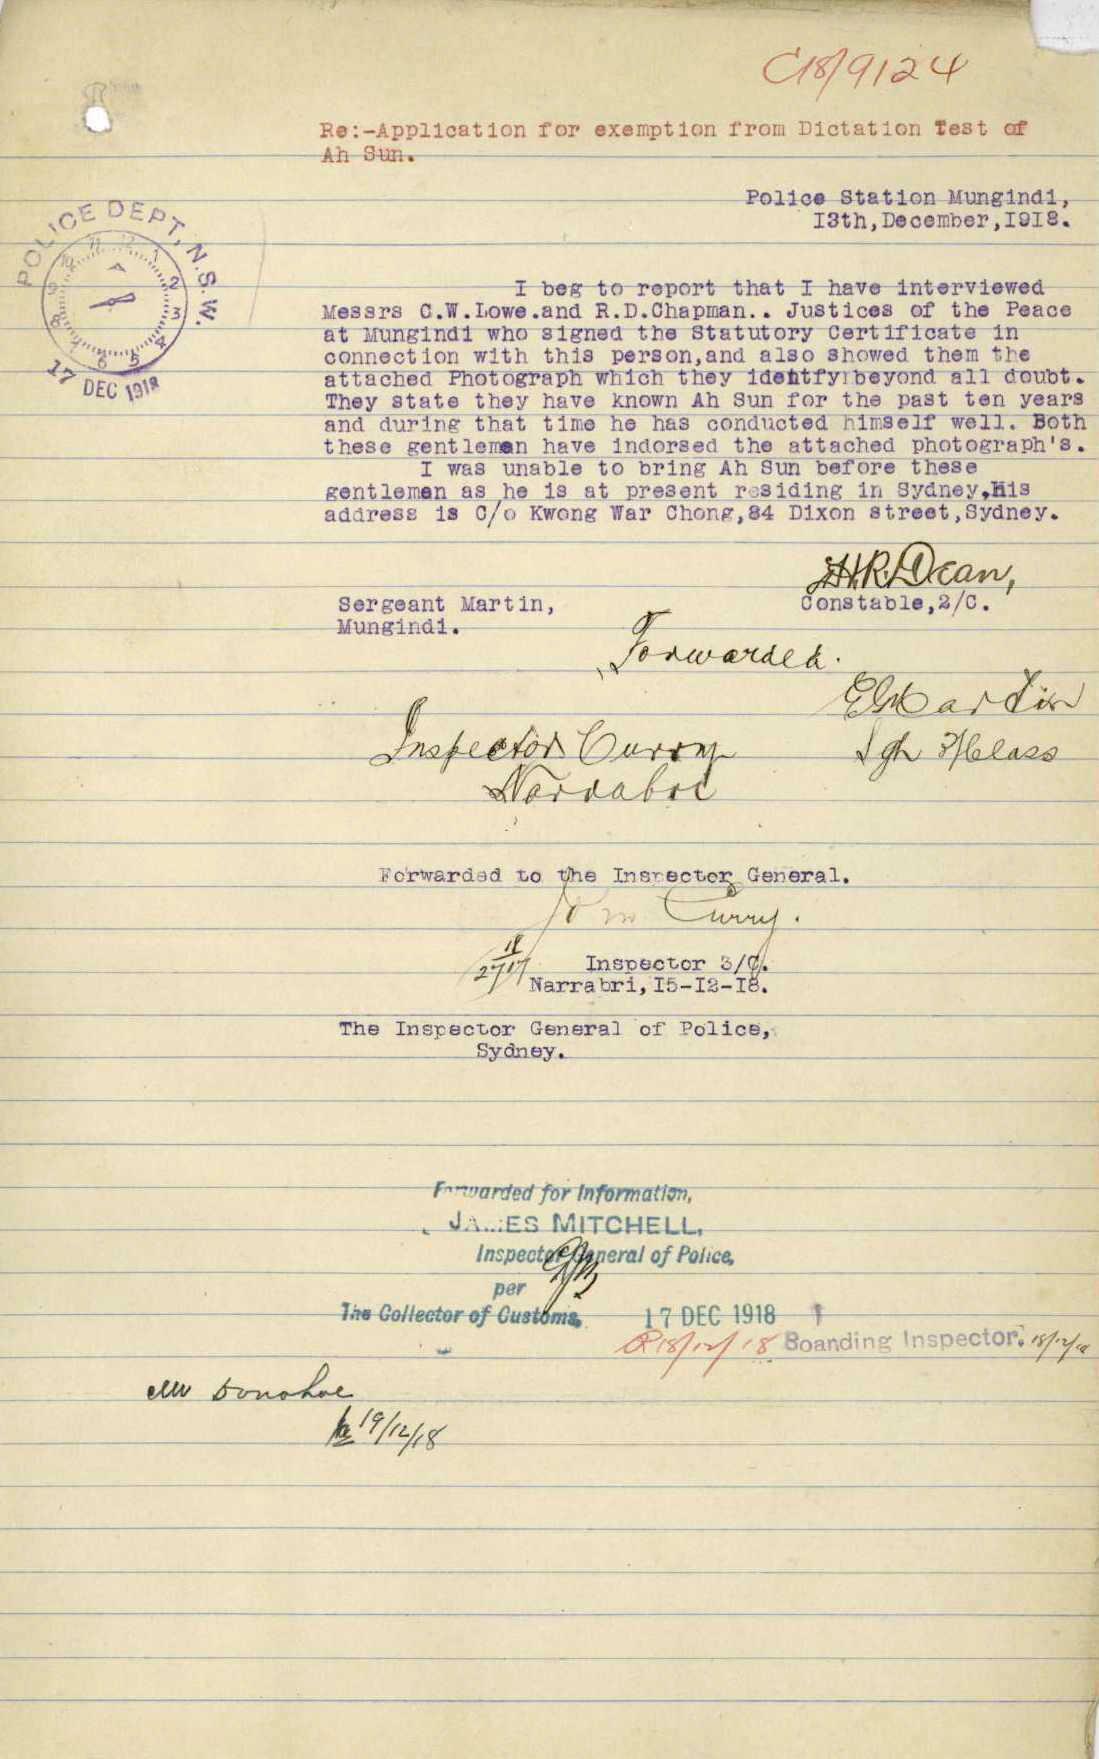 C18/9124
Re:-Application for exemption from Dictation Test of
Ah Sun.
Police Station Mungindi,
I3th,December,I9I8.
POLICE DEPT, N.S.W.
17 DEC 1918
I beg to report that I have interviewed
Messrs C.W.Lowe.and R.D.Chapman.. Justices of the Peace
at Mungindi who signed the Statutory Certificate in
connection with this person,and also showed them the
attached Photograph which they identfy beyond all doubt.
They state they have known Ah Sun for the past ten years
and during that time he has conducted himself well. Both
these gentlemen have indorsed the attached photograph's.
I was unable to bring Ah Sun before these
gentlemen as he is at present residing in Sydney,His
address is C/o Kwong War Chong,84 Dixon street,Sydney.
H.R.Dean,
Constable,2/C.
Sergeant Martin,
Mungindi.
Forwarded.
Martin
Sgt 3/Class
Inspector Curry
Narrabri
Forwarded to the Inspector General.
Curry.
Inspector 3/C.
Narrabri,I5-I2-I8.
The Inspector General of Police,
Sydney.
Forwarded for Information,
JAMES MITCHELL,
Inspector General of Police,
per
The Collector of Customs.
17 DEC 1918
18/12/18 Boarding Inspector. 18/12/18
Mr Donohoe
19/12/18